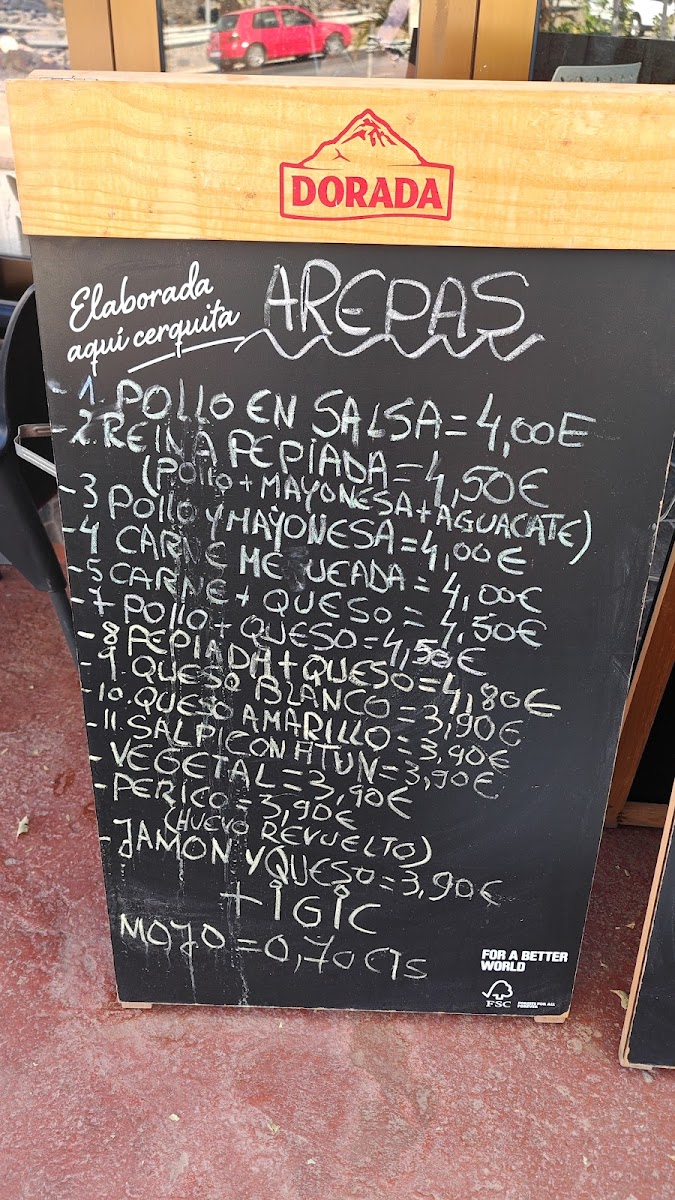 DORADA
Elaborada
aquí cerquita
AREPAS
- 1. POLLO EN SALSA = 4,00E
- 2. REINA PEPIADA = 4,50€
(POLLO + MAYONESA + AGUACATE)
- 3 POLLO Y MAYONESA = 4,00€
- 4 CARNE ME UEADA = 4,00€
- 5 CARNE + QUESO = 4,50€
- 7 POLLO + QUESO = 4,50€
- 8 PEPIADA + QUESO = 4,80€
- 9. QUESO BLANCO = 3,90€
- 10. QUESO AMARILLO = 3,90€
- 11. SALPICON ATUN = 3,90€
- VEGETAL = 3,90€
- PERICO = 3,90€
(HUEVO REVUELTO)
- JAMON Y QUESO = 3,90€
+ IGIC
MOJO = 0,70 CTS
FOR A BETTER
WORLD
FSC